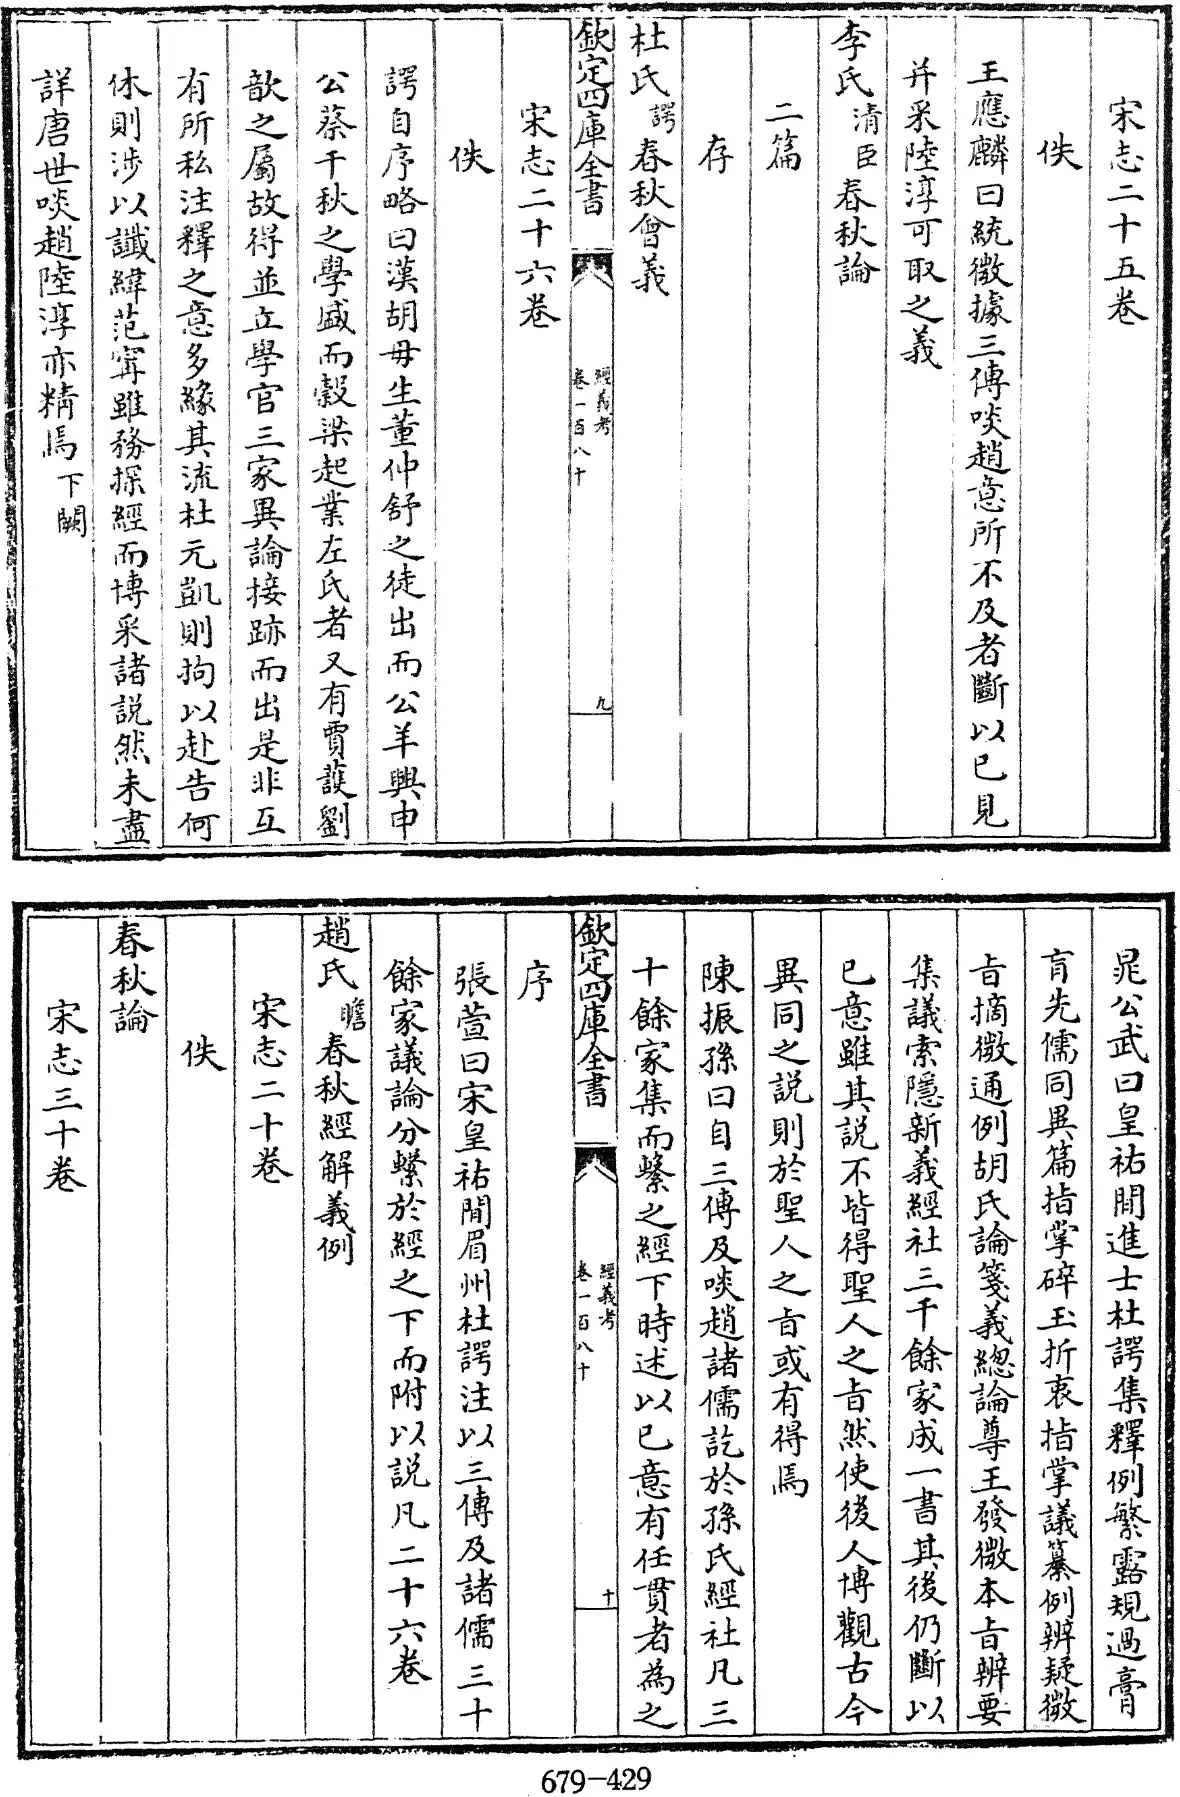 宋志二十五卷
佚
王應麟曰統微據三傳啖趙意所不及者斷以已見
并采陸淳可取之義
李氏清臣春秋論
二篇
存
杜氏諤春秋會義
欽定四庫全書
經義考
卷一百八十
九
宋志二十六卷
佚
諤自序略曰漢胡毋生董仲舒之徒出而公羊興申
公蔡千秋之學盛而穀梁起業左氏者又有賈護劉
歆之屬故得並立學官三家異論接跡而出是非互
有所私注釋之意多緣其流杜元凱則拘以赴告何
休則涉以讖緯范甯雖務探經而博采諸説然未盡
詳唐世啖趙陸淳亦精焉下闕
晁公武曰皇祐間進士杜諤集釋例繁露規過膏
肓先儒同異篇指掌碎玉折衷指掌議纂例辨疑微
旨摘微通例胡氏論箋義總論尊王發微本旨辨要
集議索隱新義經社三千餘家成一書其後仍斷以
已意雖其説不皆得聖人之旨然使後人博觀古今
異同之説則於聖人之旨或有得焉
陳振孫曰自三傳及啖趙諸儒訖於孫氏經社凡三
十餘家集而繫之經下時述以已意有任貫者為之
欽定四庫全書
經義考
卷一百八十
十
序
張萱曰宋皇祐間眉州杜諤注以三傳及諸儒三十
餘家議論分繫於經之下而附以説凡二十六卷
趙氏瞻春秋經解義例
宋志二十卷
佚
春秋論
宋志三十卷
679-429